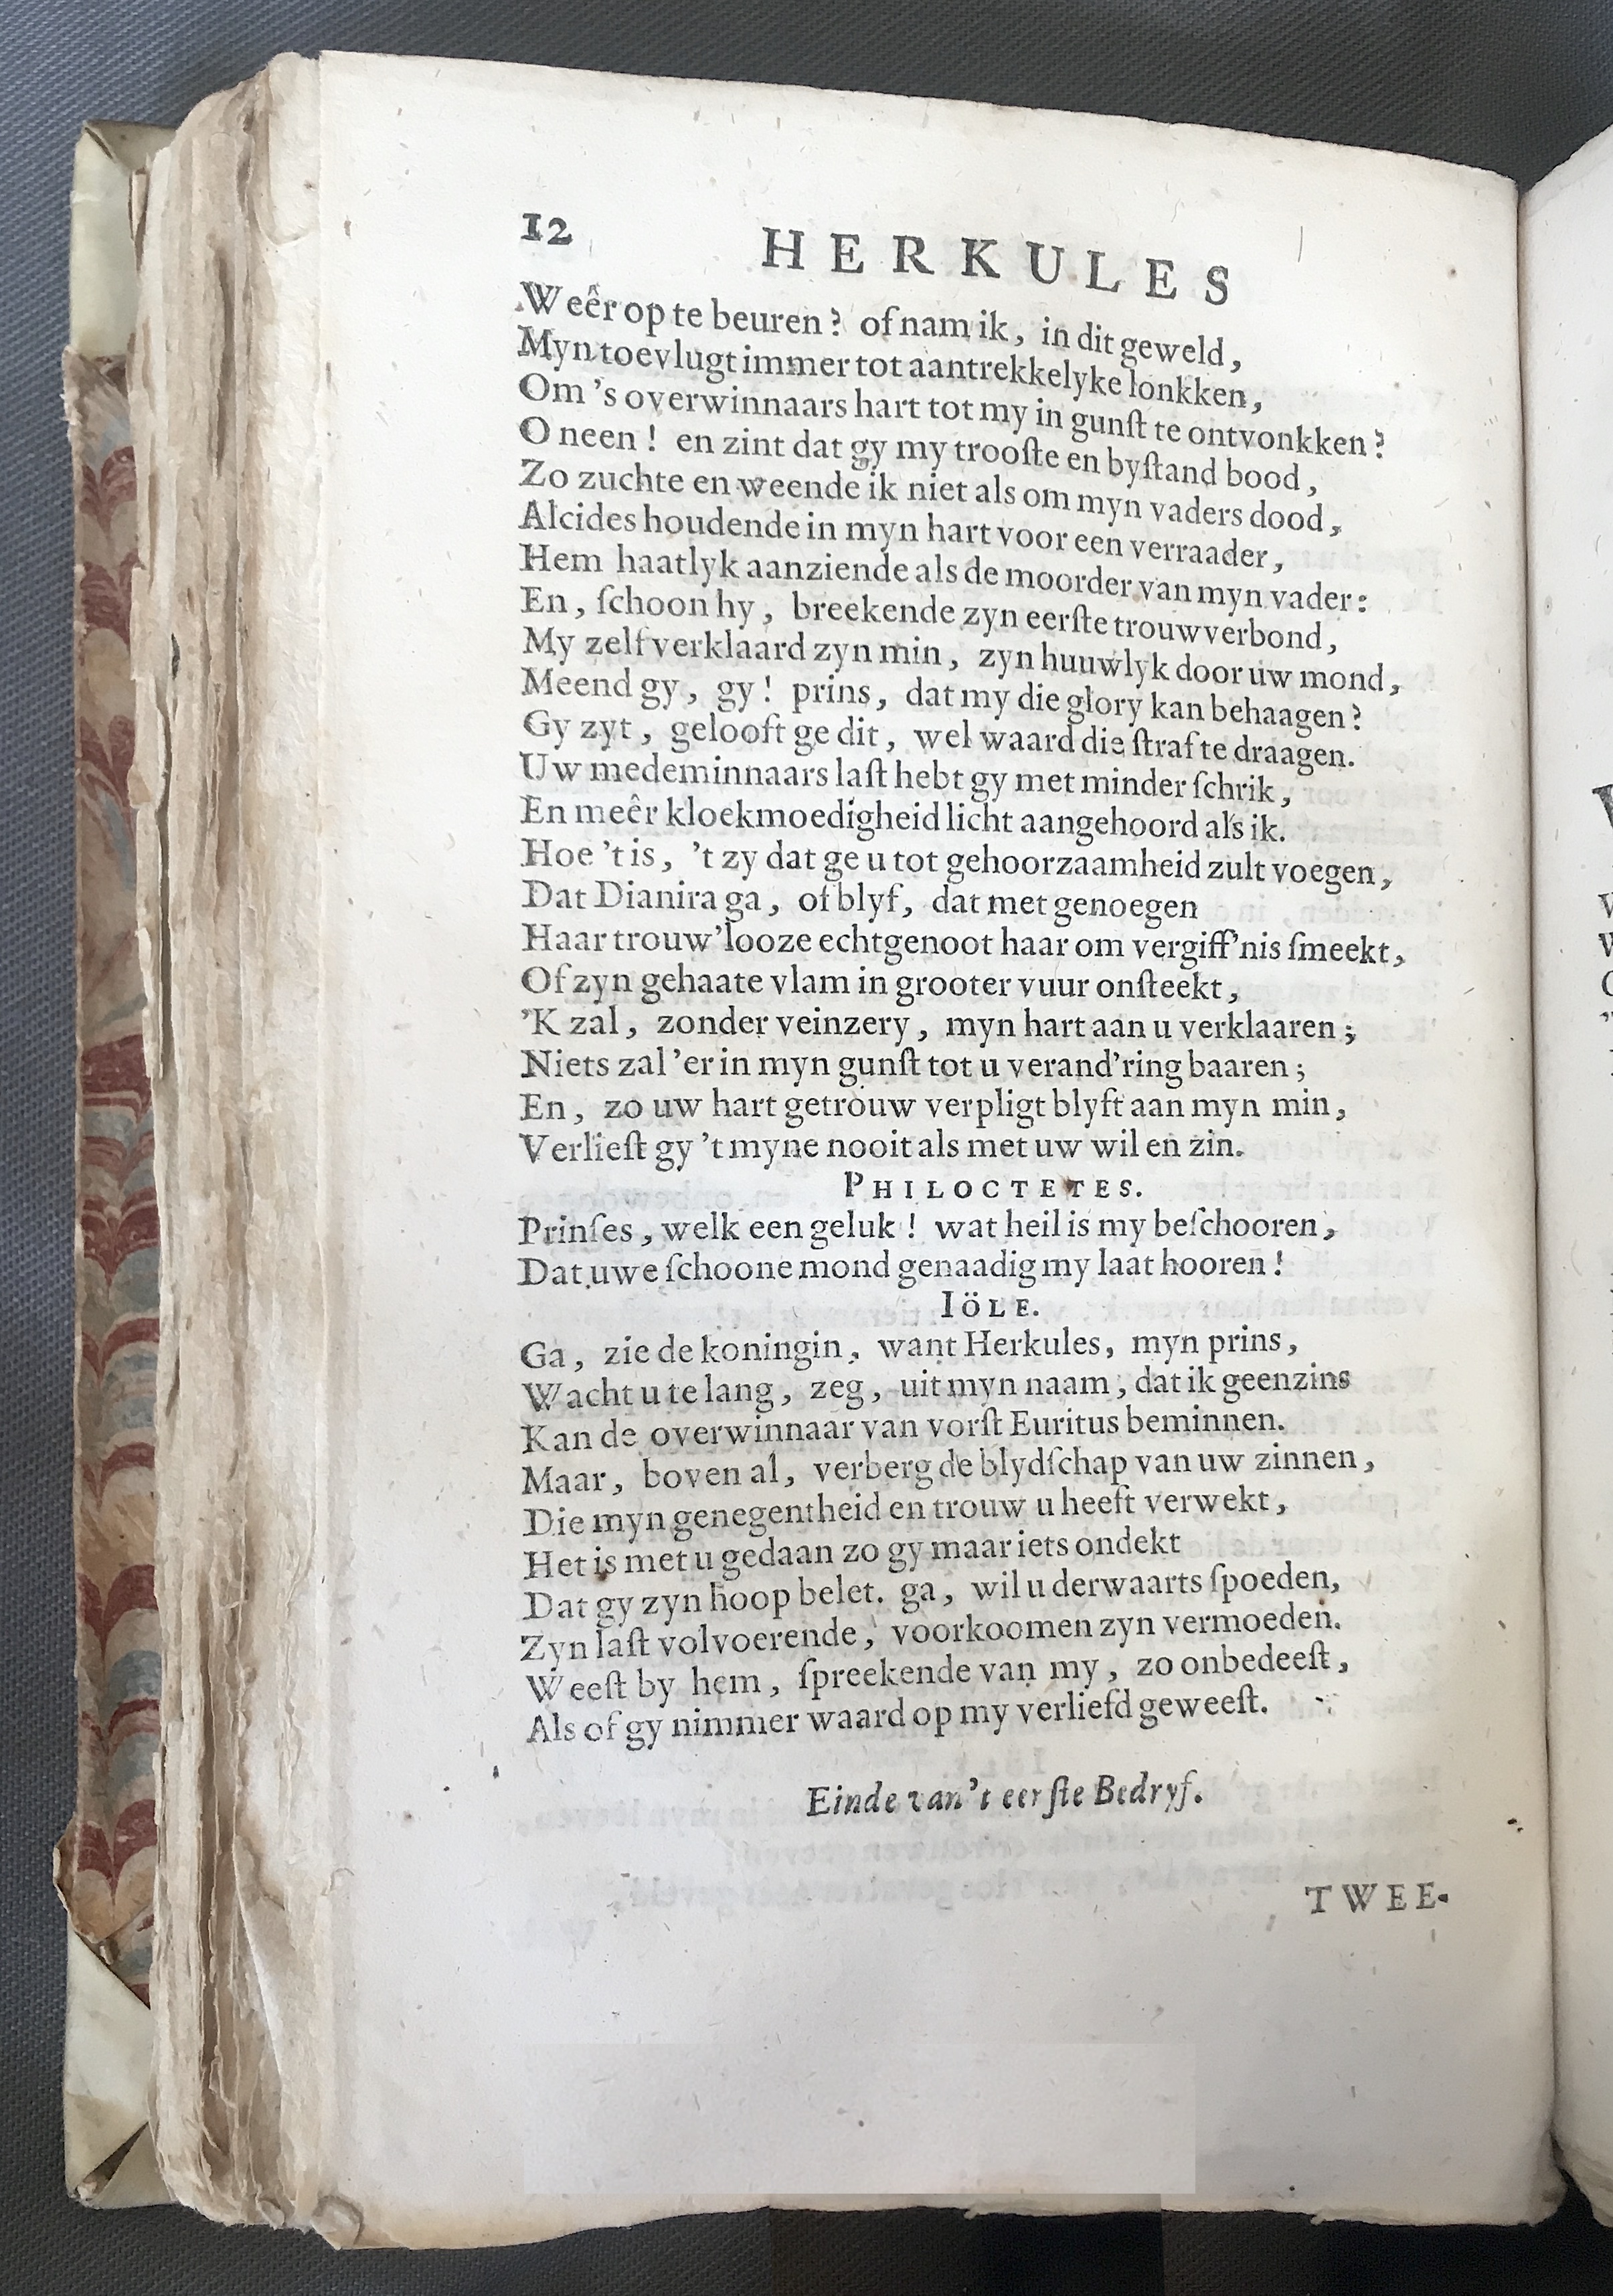 12 HERKULES
Weêr op te beuren? of nam ik, in dit geweld,
Myn toevlugt immer tot aantrekkelyke lonkken,
Om 's overwinnaars hart tot my in gunſt te ontvonkken?
O neen! en zint dat gy my trooſte en byſtand bood,
Zo zuchte en weende ik niet als om myn vaders dood,
Alcides houdende in myn hart voor een verraader,
Hem haatlyk aanziende als de moorder van myn vader:
En, ſchoon hy, breekende zyn eerſte trouwverbond,
My zelf verklaard zyn min, zyn huuwlyk door uw mond,
Meend gy, gy! prins, dat my die glory kan behaagen?
Gy zyt, gelooft ge dit, wel waard die ſtraf te draagen.
Uw medeminnaars laſt hebt gy met minder ſchrik,
En meêr kloekmoedigheid licht aangehoord als ik.
Hoe 't is, 't zy dat ge u tot gehoorzaamheid zult voegen,
Dat Dianira ga, of blyf, dat met genoegen
Haar trouw'looze echtgenoot haar om vergiff'nis ſmeekt,
Of zyn gehaate vlam in grooter vuur onſteekt,
'K zal, zonder veinzery, myn hart aan u verklaaren;
Niets zal 'er in myn gunſt tot u verand'ring baaren;
En, zo uw hart getrouw verpligt blyft aan myn min,
Verlieſt gy 't myne nooit als met uw wil en zin.
PHILOCTETES.
Prinſes, welk een geluk! wat heil is my beſchooren,
Dat uwe ſchoone mond genaadig my laat hooren!
IÖLE.
Ga, zie de koningin, want Herkules, myn prins,
Wacht u te lang, zeg, uit myn naam, dat ik geenzins
Kan de overwinnaar van vorſt Euritus beminnen.
Maar, boven al, verberg de blydſchap van uw zinnen,
Die myn genegentheid en trouw u heeft verwekt,
Het is met u gedaan zo gy maar iets ondekt
Dat gy zyn hoop belet. ga, wil u derwaarts ſpoeden,
Zyn laſt volvoerende, voorkoomen zyn vermoeden.
Weeſt by hem, ſpreekende van my, zo onbedeeſt,
Als of gy nimmer waard op my verliefd geweeſt.
Einde van't eerſte Bedryf.
TWEE-